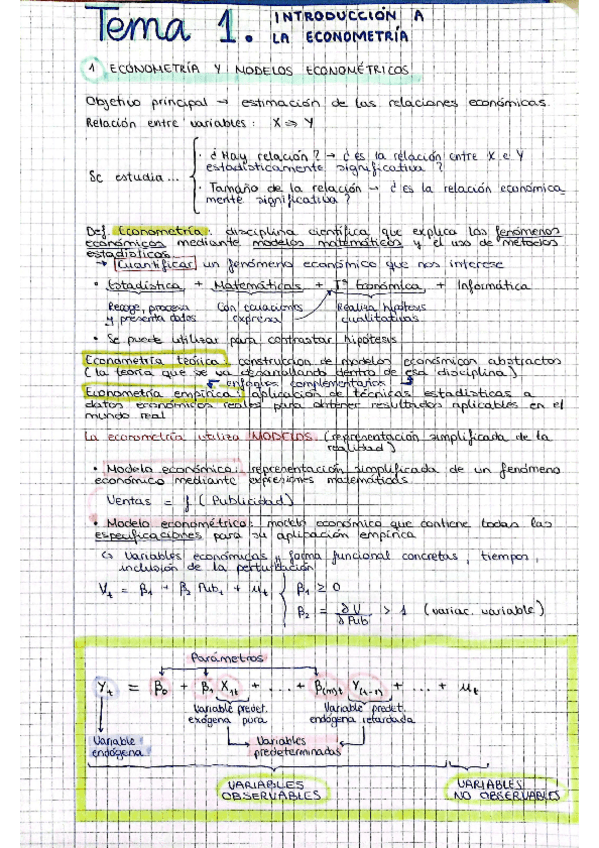 Tema 1. INTRODUCCIÓN A
LA ECONOMETRÍA
1 ECONOMETRÍA Y MODELOS ECONOMÉTRICOS
Objetivo principal → estimación de las relaciones económicas.
Relación entre variables: X ⇒ Y
Se estudia...
· ¿Hay relación? → ¿es la relación entre X e Y
estadísticamente significativa?
· Tamaño de la relación → ¿es la relación económica
mente significativa?
Def Econometría: disciplina científica que explica los fenómenos
económicos mediante modelos matemáticos y el uso de métodos
estadísticos
→ Cuantificar un fenómeno económico que nos interese
• Estadística + Matemáticas + Tª Económica + Informática
Recoge, procesa Con ecuaciones Realiza hipótesis
y presenta datos expresa cualitativas
• Se puede utilizar para contrastar hipótesis
Econometría teórica: construcción de modelos económicos abstractos
(la teoría que se va desarrollando dentro de esa disciplina)
enfoques complementarios
Econometría empírica: aplicación de técnicas estadísticas a
datos económicos reales para obtener resultados aplicables en el
mundo real
La econometría utiliza MODELOS (representación simplificada de la
realidad)
• Modelo económico: representación simplificada de un fenómeno
económico mediante expresiones matemáticas
Ventas = f (Publicidad)
• Modelo econométrico: modelo económico que contiene todas las
especificaciones para su aplicación empírica
↳ Variables económicas, forma funcional concretas, tiempos,
inclusión de la perturbación
Vt = β1 + β2 Pubt + ut
β1 ≥ 0
β2 = ∂V / ∂Pub > 1 (variac. variable)
Parámetros
Yt = β0 + β1 X1t + ... + β(m)t Y(t-1) + ... + ut
Variable predet. Variable predet.
exógena pura endógena retardada
Variable Variables
endógena predeterminadas
VARIABLES VARIABLES
OBSERVABLES NO OBSERVABLES